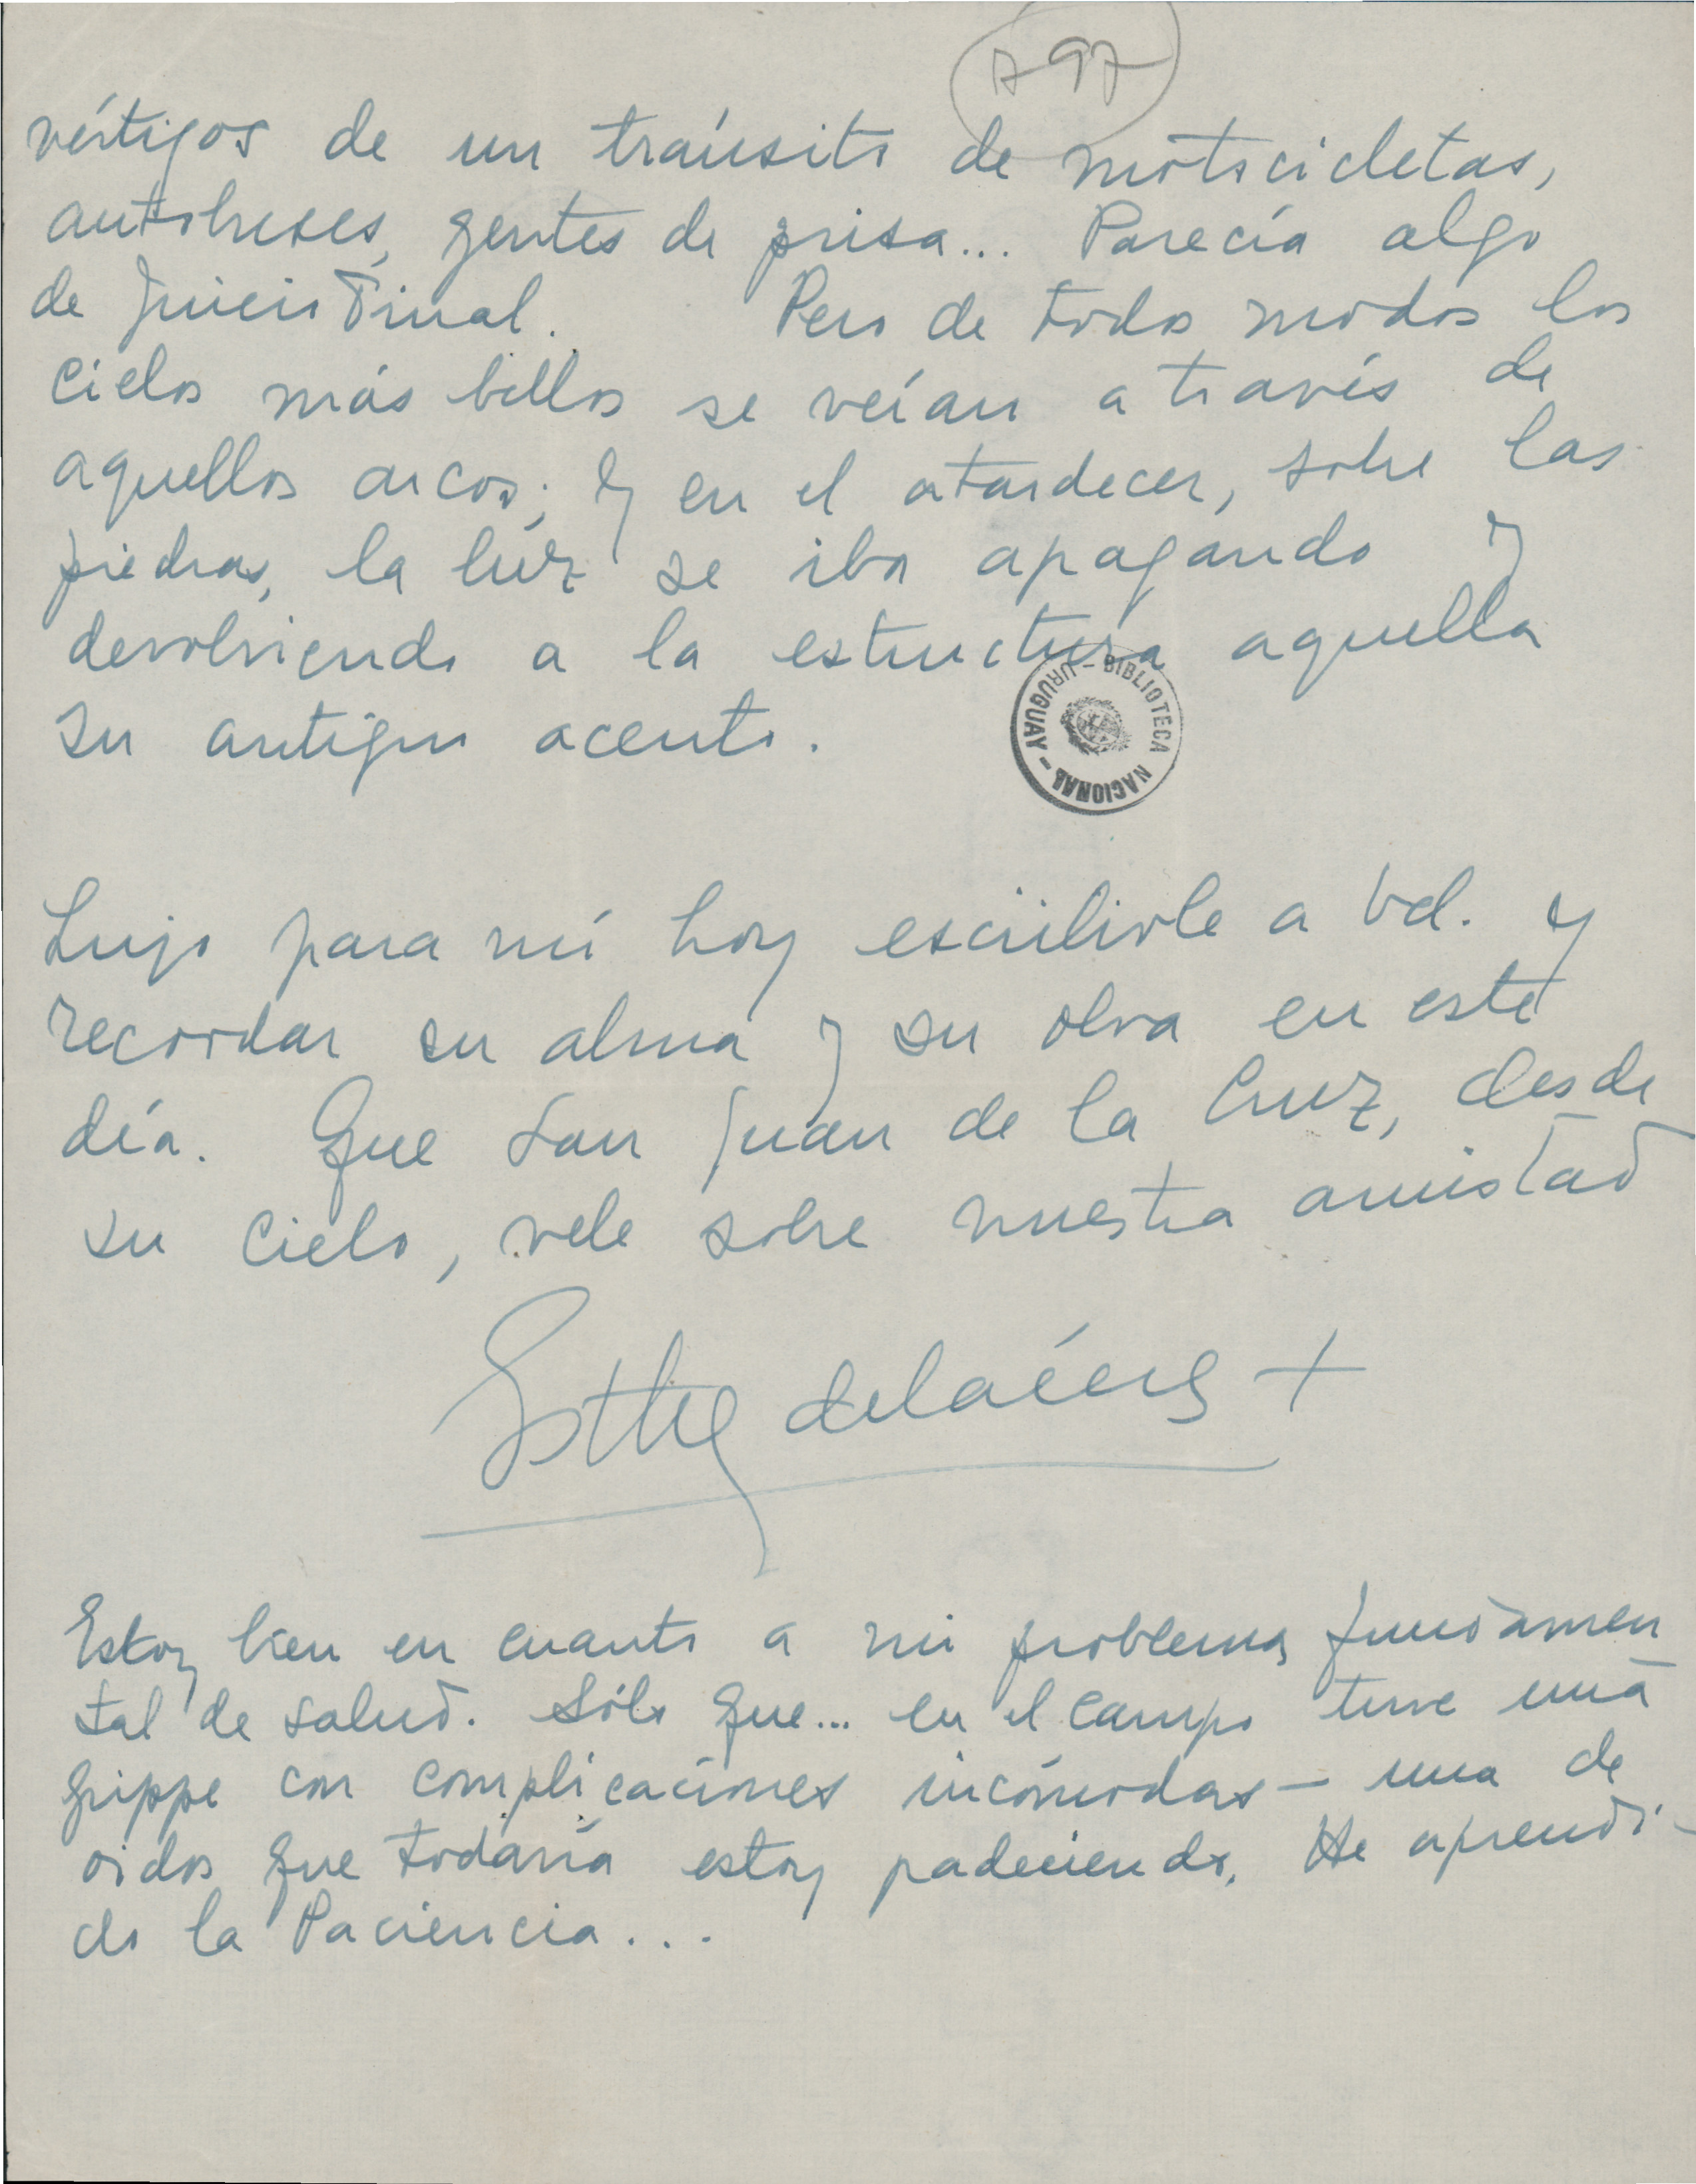 797
vértigos de un tránsito de motocicletas,
autobuses, gentes de prisa... Parecía algo
de Juicio Final. Pero de todos modos los
cielos más bellos se veían a través de
aquellos arcos; y en el atardecer, sobre las
piedras, la lúz se iba apagando y
devolviendo a la estructura aquella
su antiguo acento.
URUGUAY - BIBLIOTECA NACIONAL -
Lujo para mí hoy escribirle a Vd. y
recordar su alma y su obra en este
día. Que San Juan de la Cruz, desde
su Cielo, vele sobre nuestra amistad
Esther de Cáceres +
Estoy bien en cuanto a mi problema fundamen
tal de salud. Sólo que... en el campo tuve una
grippe con complicaciones incómodas - una de
oidos que todavía estoy padeciendo. He aprendi-
do la Paciencia...